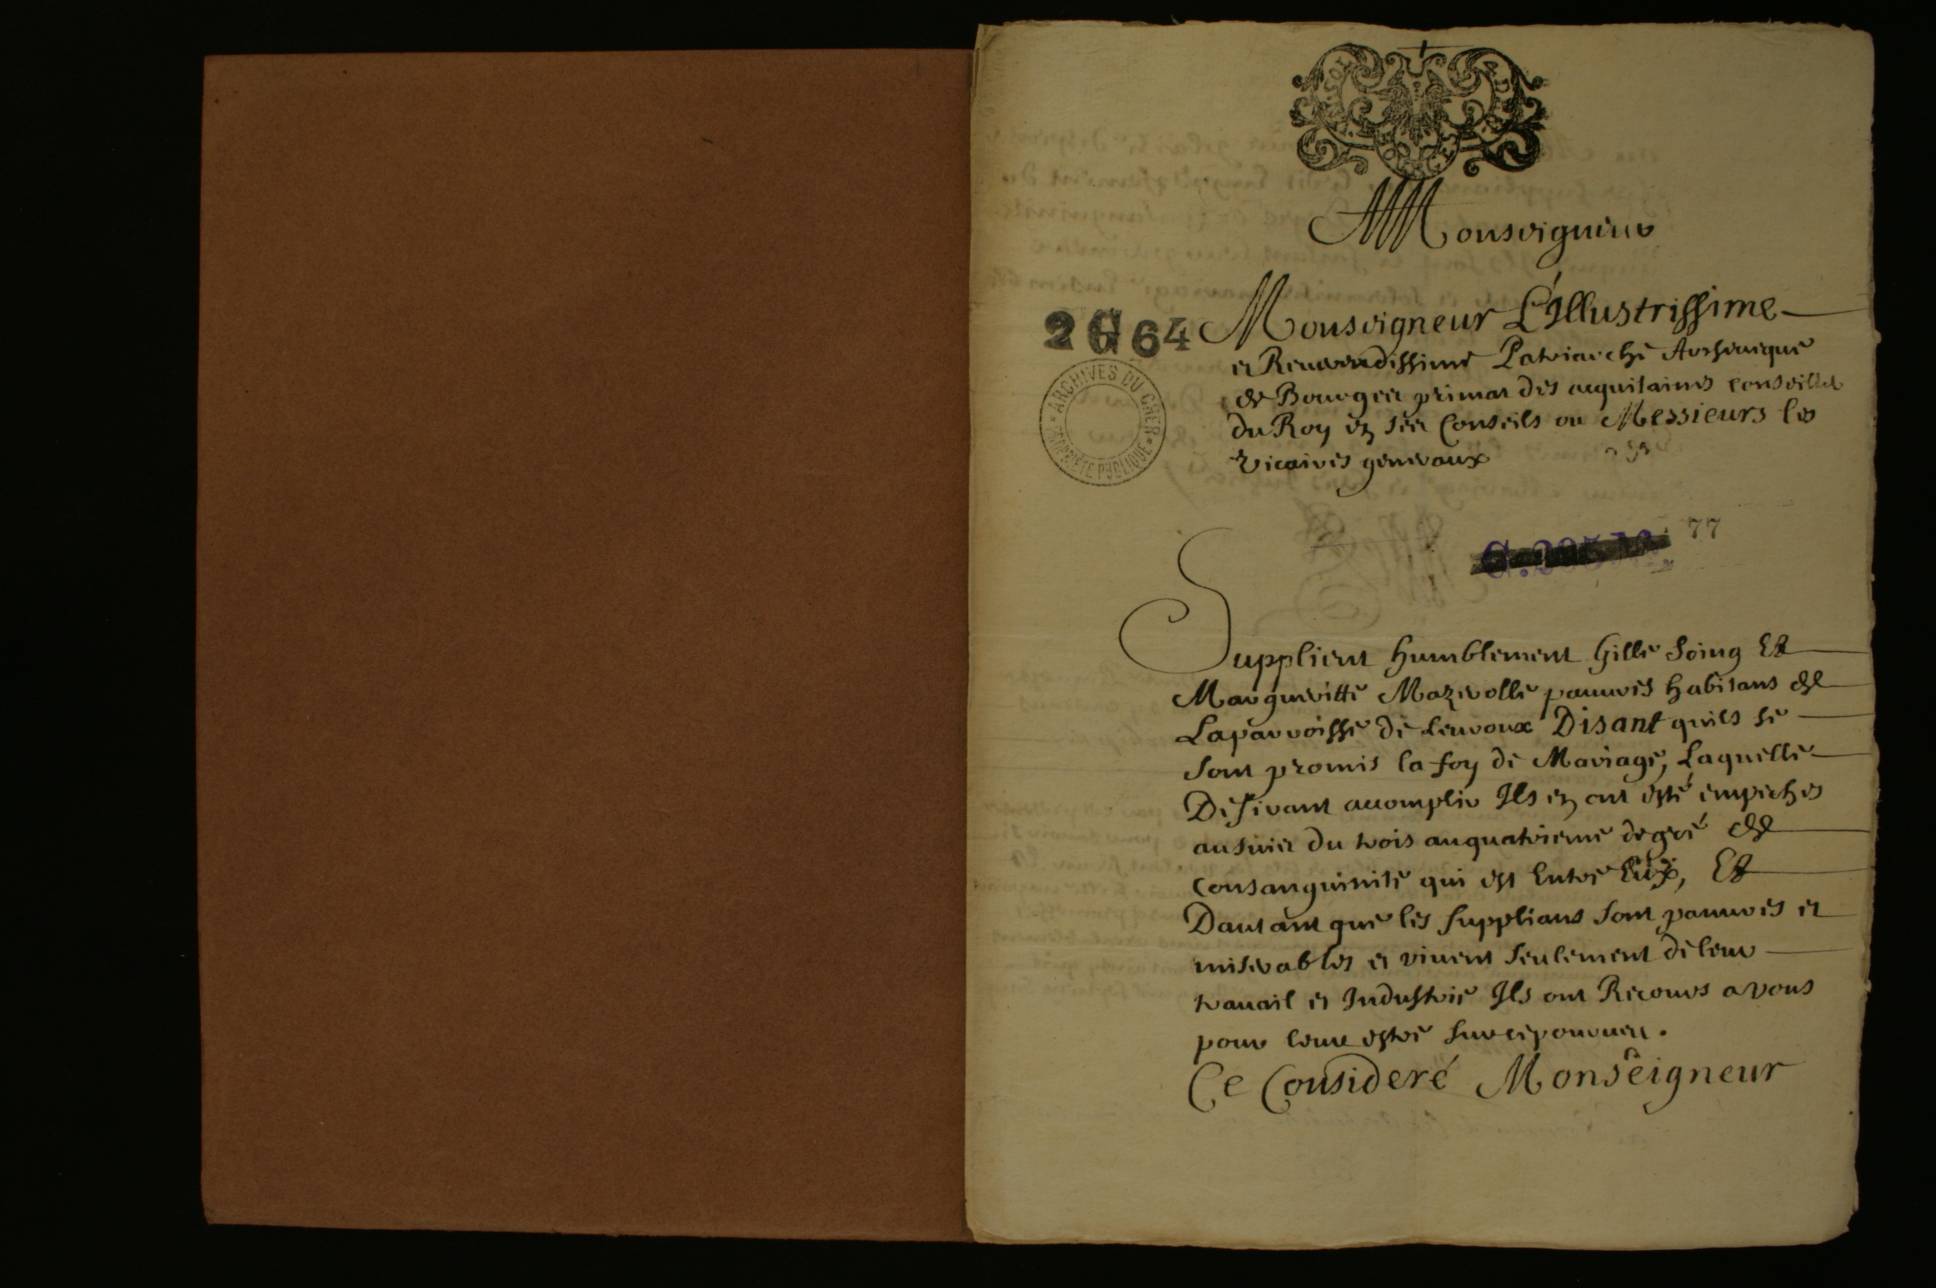 A Monseigneur
Monseigneur L'Illustrissime
et Reuerendissime Patriarche Archeuesque
de Bourges primat des acquitaines conseiller
du Roy en ses Conseils ou Messieurs les
Vicaires generaux
2 G 64
ARCHIVES DU CHER
PROPRIÉTÉ PUBLIQUE
77
Supplient humblement Gille Soing Et
Margueritte Mazerolle pauures habitans de
La parroisse de Leuroux Disant quils se
sont promis la foy de Mariage, Laquelle
Desirant accomplir Ils en ont esté empeches
au suiet du trois au quatrieme degré de
consanguinité qui est Entre Eux, Et
Dautant que les supplians sont pauures et
miserables et viuent seulement de leur
trauail et Industrie Ils ont Recours a vous
pour leur estre sur ce pourueu.
Ce Consideré Monseigneur